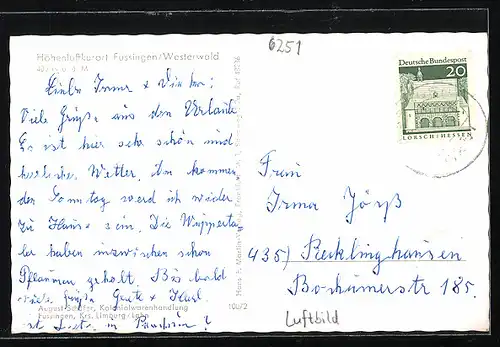 6251
Höhenluftkurort Fussingen/Westerwald
Liebe Irma &
Viele Grüße aus dem Urlaub.
Es ist hier sehr schön und
herrliches Wetter. Am kommen
den Sonntag werd ich wieder
zu Hause sein. Die Wupperta
ler haben inzwischen schon
Pflaumen geholt. Bis bald
viele Grüße Grete & Karl.
August Schäfer, Kolonialwarenhandlung
Fussingen, Krs. Limburg/Lahn
ist in ?
10072
Deutsche Bundespost
20
LORSCH/HESSEN
Frau
Irma Jörß
435) Recklinghausen
Bochumerstr 185.
Luftbild